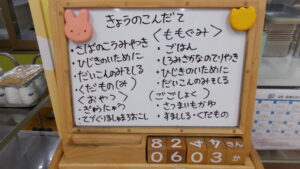 きょうのこんだて
・さばのこうみやき
・ひじきのいために
・だいこんのみそしる
・くだもの(み)
〈おやつ〉
・ぎゅうにゅう
・てづくりましゅまろおこし
〈ももぐみ〉
・ごはん
・しろみざかなのてりやき
・ひじきのいために
・だいこんのみそしる
〈ごごしょく〉
・さつまいもかゆ
・すましじる・くだもの
82
0603
か